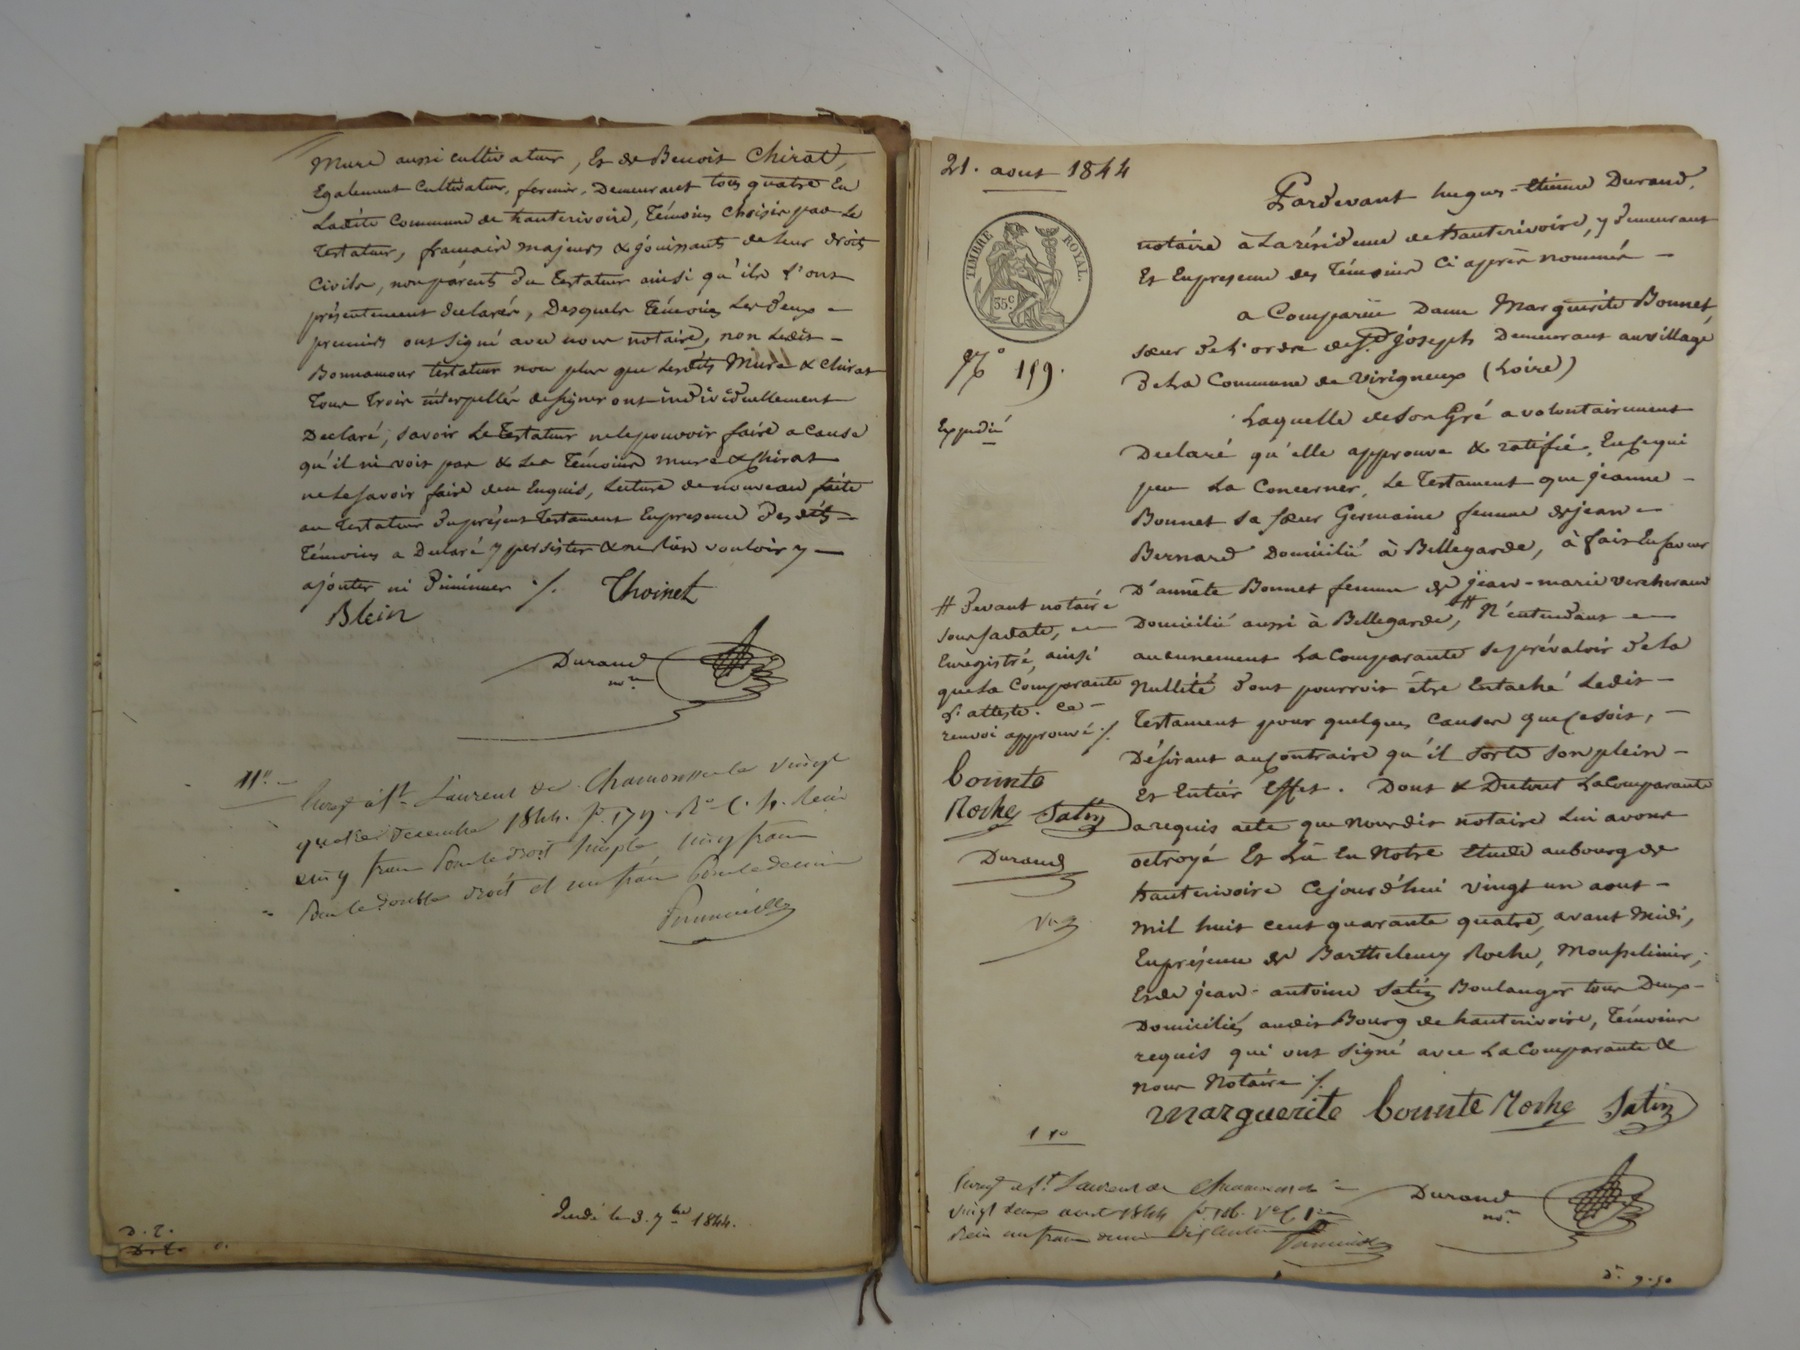 Mure aussi cultivateur, Et de Benoit Chirat,
Egalement Cultivateur, fermier, Demeurant tous quatre En
Ladite Commune de hauterivoire, Témoins choisis par Le
Testateur, français majeurs & jouissants de leur droits
Civils, non parents du Testateur ainsi qu'ils l'ont
présentement declaré, Desquels Témoins Les deux
premiers ont Signé avec nous notaire, non Ledit
Bonnamour testateur non plus que Lesdits Mure & Chirat
Tous Trois interpellés de signer ont individuellement
Declaré, savoir Le Testateur ne le pouvoir faire a cause
qu'il ni voit pas & Les Témoins mure & Chirat
ne Le savoir faire de ce Enquis, Lecture de nouveau faite
au Testateur du présent Testament En presence Desdits
Témoins a Declaré y persister & ne rien vouloir y
ajouter ni Diminuer ./. Thoinet
Blein
Durand
nore
11 fr
Enregé à St Laurent de Chamousset le vingt
quatre decembre 1844. fo 179. Ro C. 4. Recu
cinq francs Pour le droit simple cinq francs
Pour le double droit et un franc Pour le decime
jeudi le 5. 7bre 1844.
21. aout 1844
TIMBRE ROYAL
35c
No 159.
Expedié
Pardevant hugues-Etienne Durand,
notaire à La résidence de hauterivoire, y demeurant
Et En presence des Témoins Ci après nommés
a Comparüe Dame Marguerite Bonnet,
sœur de L'ordre de St joseph Demeurant au village
de La Commune de Virigneux (Loire)
Laquelle de Son Gré a volontairement
Declaré qu'elle approuve & ratifie, En ce qui
peu La Concerner, Le Testament que jeanne
Bonnet Sa sœur Germaine femme de jean
Bernard Domicilié à Bellegarde, à fait En faveur
D'annete Bonnet femme de jean-marie vercherand
Domicilié aussi à Bellegarde, # N'entendant
aucunement La Comparante Se prévaloir de La
Nullité dont pourroit être Entaché Ledit
Testament pour quelques Causes que ce soit,
Désirant au Contraire qu'il Sorte Son plein
Et Entier Effet. Dont & Dutout La Comparante
a requis acte que Nousdit notaire Lui avons
octroyé Et Lu En Notre Etude au bourg de
hauterivoire Cejourd'hui vingt un aout
mil huit cent quarante quatre, avant Midi,
En présence de Barthelemy Roche, Mousselinier,
Et de jean-antoine Satin Boulanger tous Deux
Domiciliés audit Bourg de hauterivoire, Témoins
requis qui ont Signé avec La Comparante &
nous Notaire ./.
# devant notaire
sous sa date,
Enregistré, ainsi
que La Comparante
L'atteste. Ce
renvoi approuvé ./.
bonnte
Roche Satin
Durand
marguerite bonnte Roche Satin
1 10
Enregé à St Laurent de Chamousset
vingt deux aout 1844
Recu un franc decime dix centimes
Durand
nore